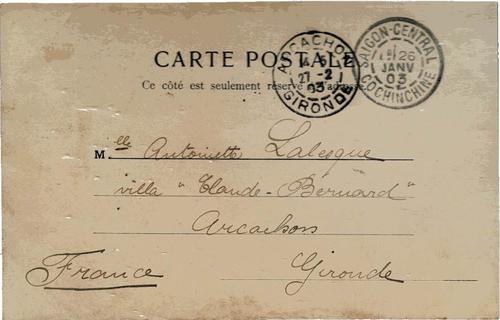 CARTE POSTALE
Ce côté est seulement réservé à l'adresse.
ARCACHON
27 -2
03
GIRONDE
SAIGON-CENTRAL
26
JANV
03
COCHINCHINE
Mlle Antoinette Lalesque
villa "Claude-Bernard"
Arcachon
France Gironde